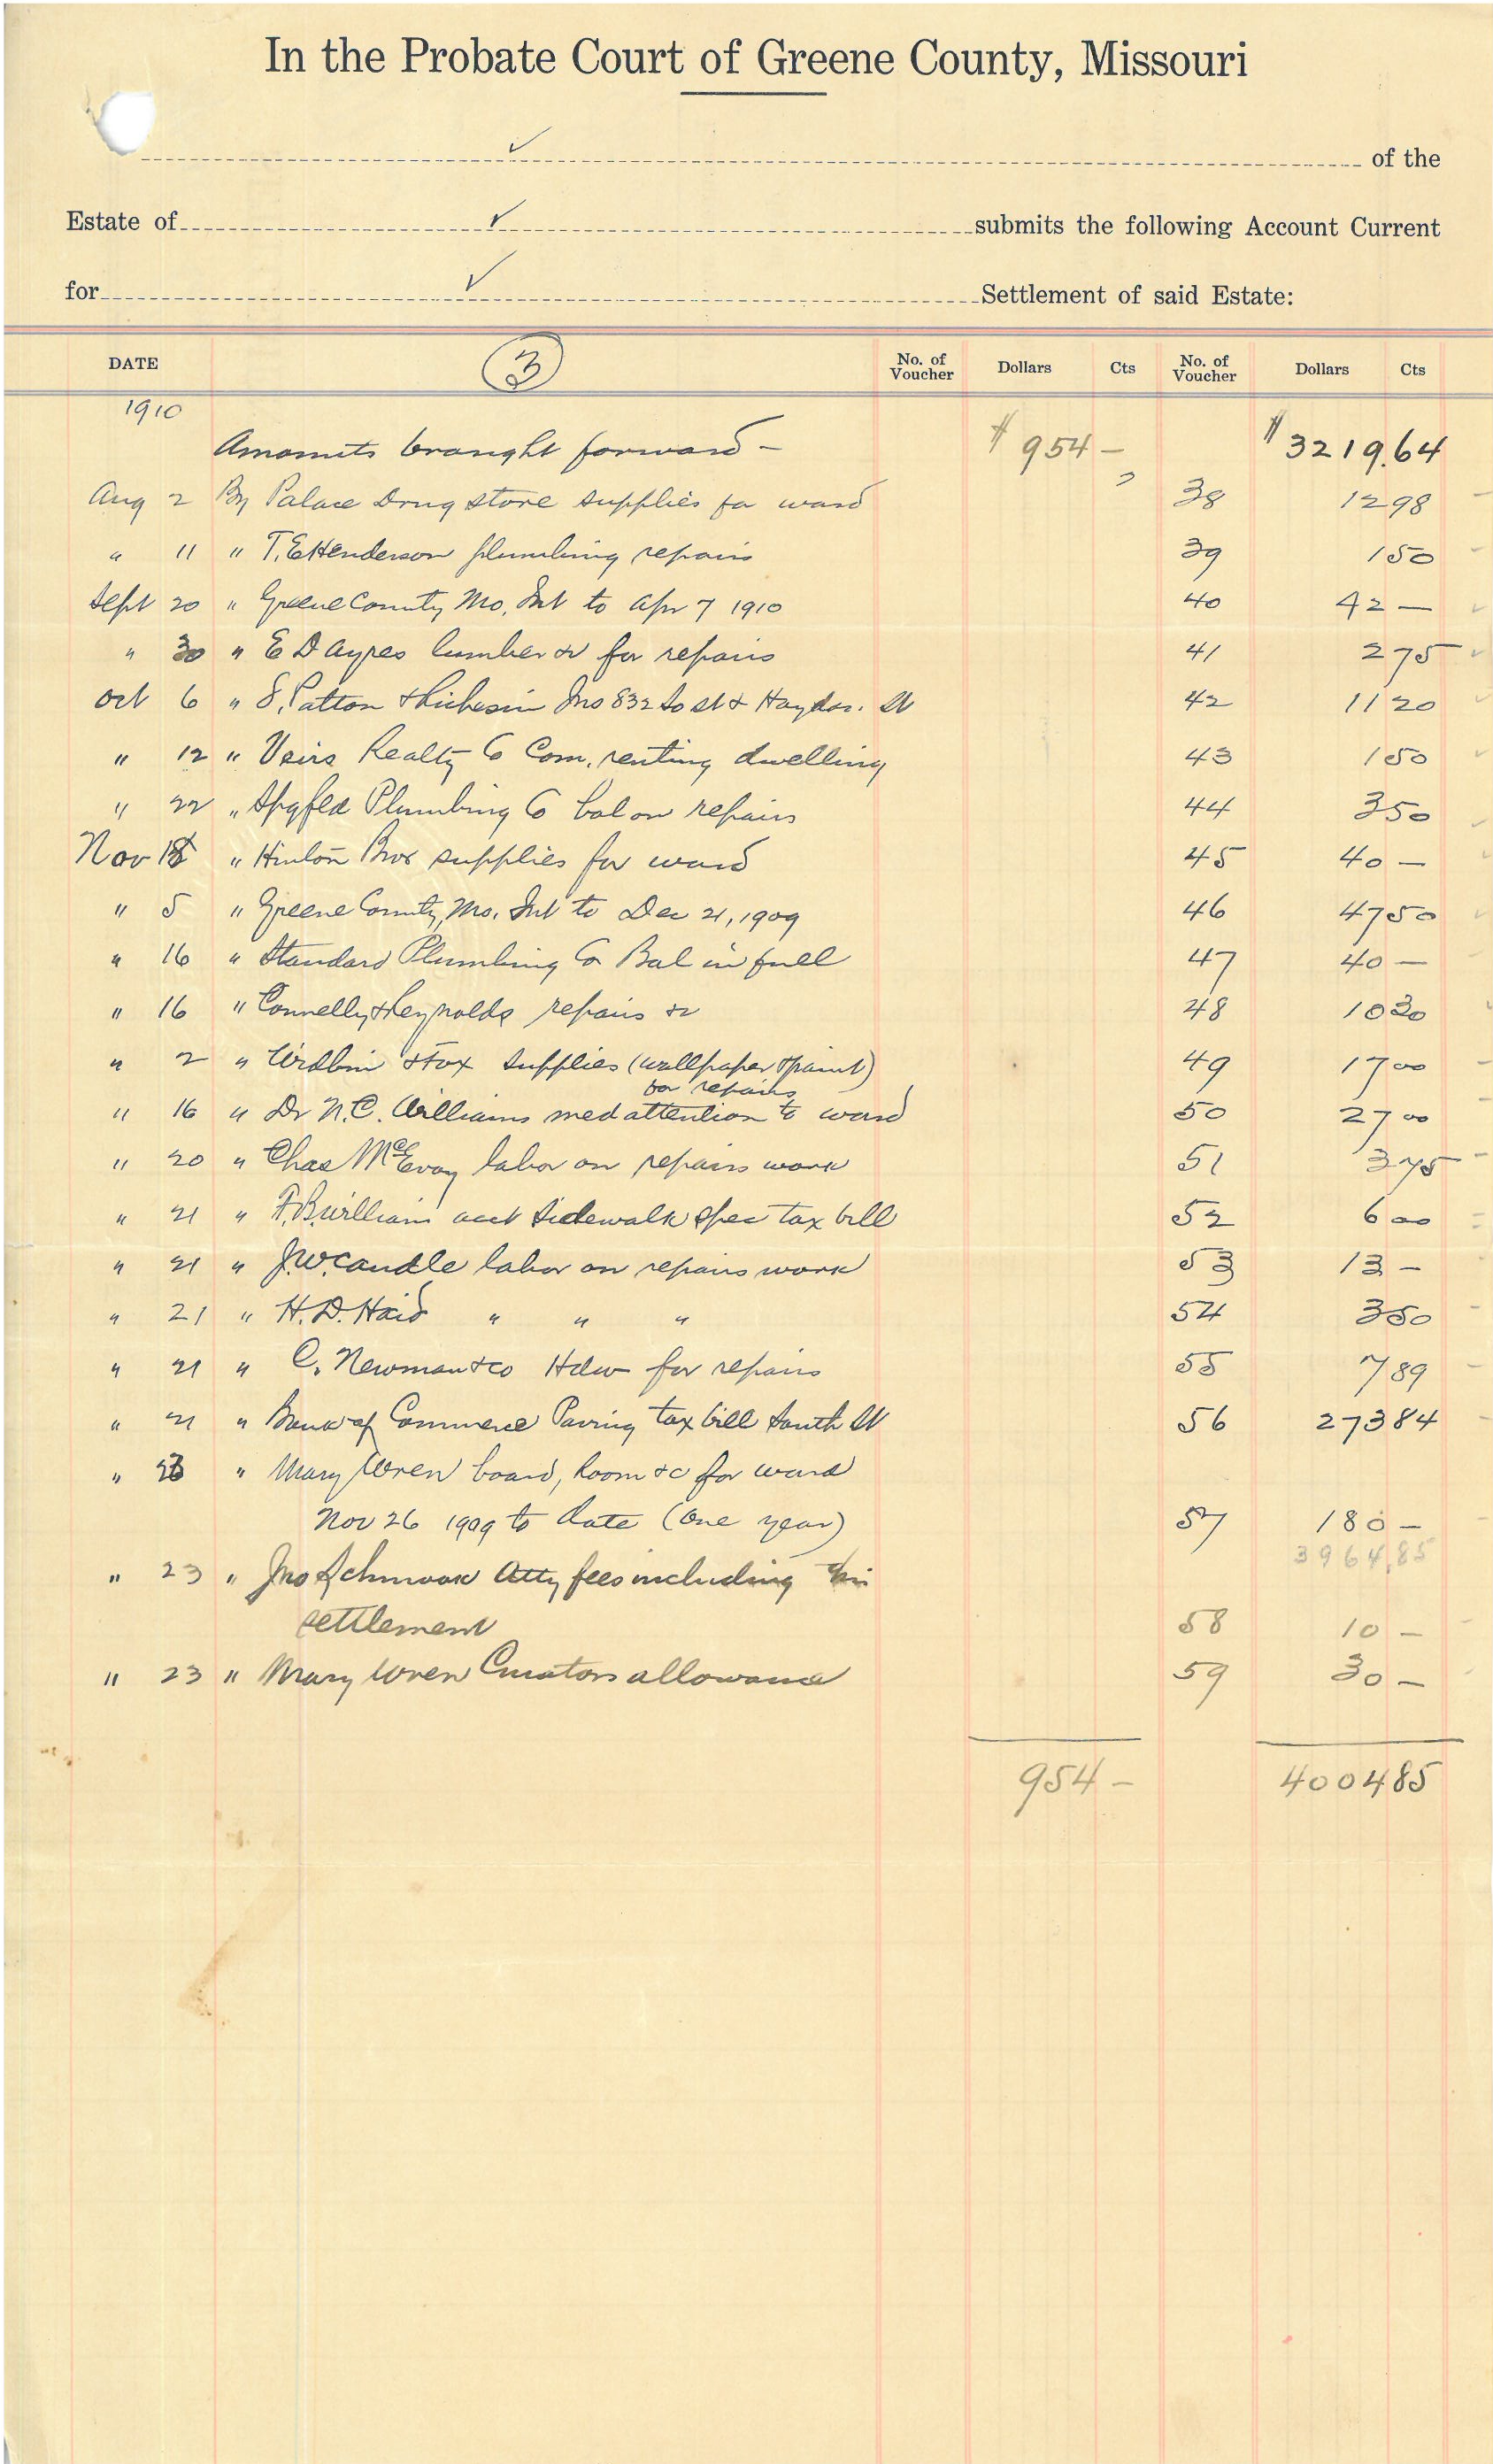 In the Probate Court of Greene County, Missouri
of the
Estate of submits the following Account Current
for Settlement of said Estate:
DATE 3 No. of Voucher Dollars Cts No. of Voucher Dollars Cts
1910
Amounts brought forward - $ 954 - $ 3219.64
Aug 2 By Palace Drug store supplies for ward 38 12 98
" 11 " T.E Henderson plumbing repairs 39 1 50
Sept 20 " Greene County Mo. Int to Apr 7 1910 40 42 -
" 30 " E D Ayres lumber &c for repairs 41 2 75
Oct 6 " Patton & Ins 832 So St & St 42 11 20
" 12 " Veirs Realty Co Com. renting dwelling 43 1 50
" 22 " Spgfed Plumbing Co bal on repairs 44 3 50
Nov " Hinton Bros supplies for ward 45 40 -
" 5 " Greene County, Mo. Int to Dec 21, 1909 46 47 50
" 16 " Standard Plumbing Co Bal in full 47 40 -
" 16 " Connelly & Reynolds repairs &c 48 10 30
" 2 " & Fox supplies (wallpaper & paint) 49 17 00
for repairs
" 16 " Dr N.C. Williams med attention to ward 50 27 00
" 20 " Chas McEvoy labor on repairs work 51 3 75
" 21 " F.B. William acct Sidewalk spec tax bill 52 6 00
" 21 " J.W. Caudle labor on repairs work 53 13 -
" 21 " H.D. Haid " " " 54 3 50
" 21 " C. Newman & co Hdw for repairs 55 7 89
" 21 " Bank of Commerce Paving tax bill South St 56 273 84
" 23 " Mary Wren board, Room &c for ward
Nov 26 1909 to date (one year) 57 180 -
3964.85
" 23 " Jno Schmook Atty fees including
settlement 58 10 -
" 23 " Mary Wren Curators allowance 59 30 -
954 - 4004 85